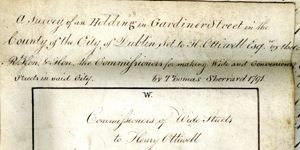 A Survey of an Holding in Gardiner Street in the
County of the City of Dublin Set to H. Ottiwell Esqr. by the
Rt. Hon. & Hon. the Commissioners for making Wide and Convenient
Streets in said City. by Thomas Sherrard 1791
W.
Commissioners of Wide Streets
to Henry Ottiwell